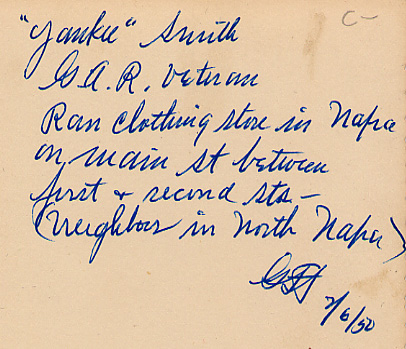 C-
"Yankee" Smith
G.A.R. Veteran
Ran clothing store in Napa
on main st between
first + second sts -
(Neighbor in North Napa)
2/6/50